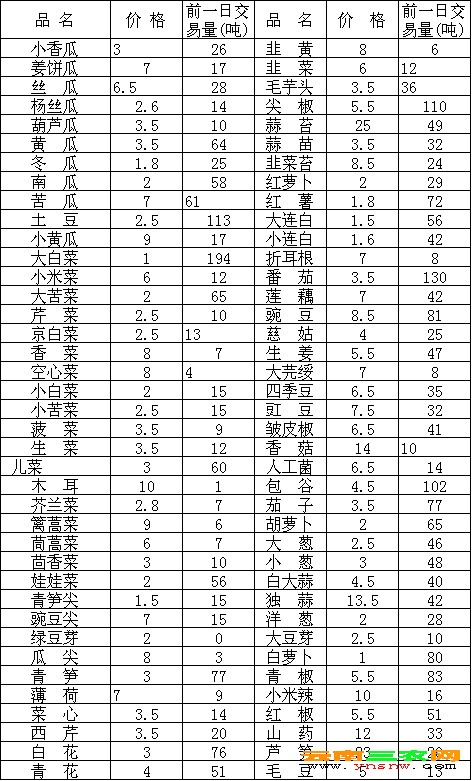 品 名 价 格 前一日交易量(吨) 品 名 价 格 前一日交易量(吨)
小香瓜 3 26 韭 黄 8 6
姜饼瓜 7 17 韭 菜 6 12
丝 瓜 6.5 28 毛芋头 3.5 36
杨丝瓜 2.6 14 尖 椒 5.5 110
葫芦瓜 3.5 10 蒜 苔 25 49
黄 瓜 3.5 64 蒜 苗 3.5 32
冬 瓜 1.8 25 韭菜苔 8.5 24
南 瓜 2 58 红萝卜 2 29
苦 瓜 7 61 红 薯 1.8 72
土 豆 2.5 113 大连白 1.5 56
小黄瓜 9 17 小连白 1.6 42
大白菜 1 194 折耳根 7 8
小米菜 6 12 番 茄 3.5 130
大苦菜 2 65 莲 藕 7 42
芹 菜 2.5 10 豌 豆 8.5 81
京白菜 2.5 13 慈 姑 4 25
香 菜 8 7 生 姜 5.5 47
空心菜 8 4 大芫绥 7 8
小白菜 2 15 四季豆 6.5 35
小苦菜 2.5 15 豇 豆 7.5 32
菠 菜 3.5 9 皱皮椒 6.5 41
生 菜 3.5 12 香 菇 14 10
儿菜 3 60 人工菌 6.5 14
木 耳 10 1 包 谷 4.5 102
芥兰菜 2.8 7 茄 子 3.5 77
篱蒿菜 9 6 胡萝卜 2 65
茼蒿菜 6 7 大 葱 2.5 46
茴香菜 3 10 小 葱 3 48
娃娃菜 2 56 白大蒜 4.5 40
青笋尖 1.5 15 独 蒜 13.5 42
豌豆尖 7 15 洋 葱 2 28
绿豆芽 2 0 大豆芽 2.5 10
瓜 尖 8 3 白萝卜 1 80
青 笋 3 77 青 椒 5.5 83
薄 荷 7 9 小米辣 10 16
菜 心 3.5 14 红 椒 5.5 51
西 芹 3.5 20 山 药 12 33
白 花 3 76 芦 笋
青 花 4 51 毛 豆 5 13
云南三农网
www.ynsnw.com